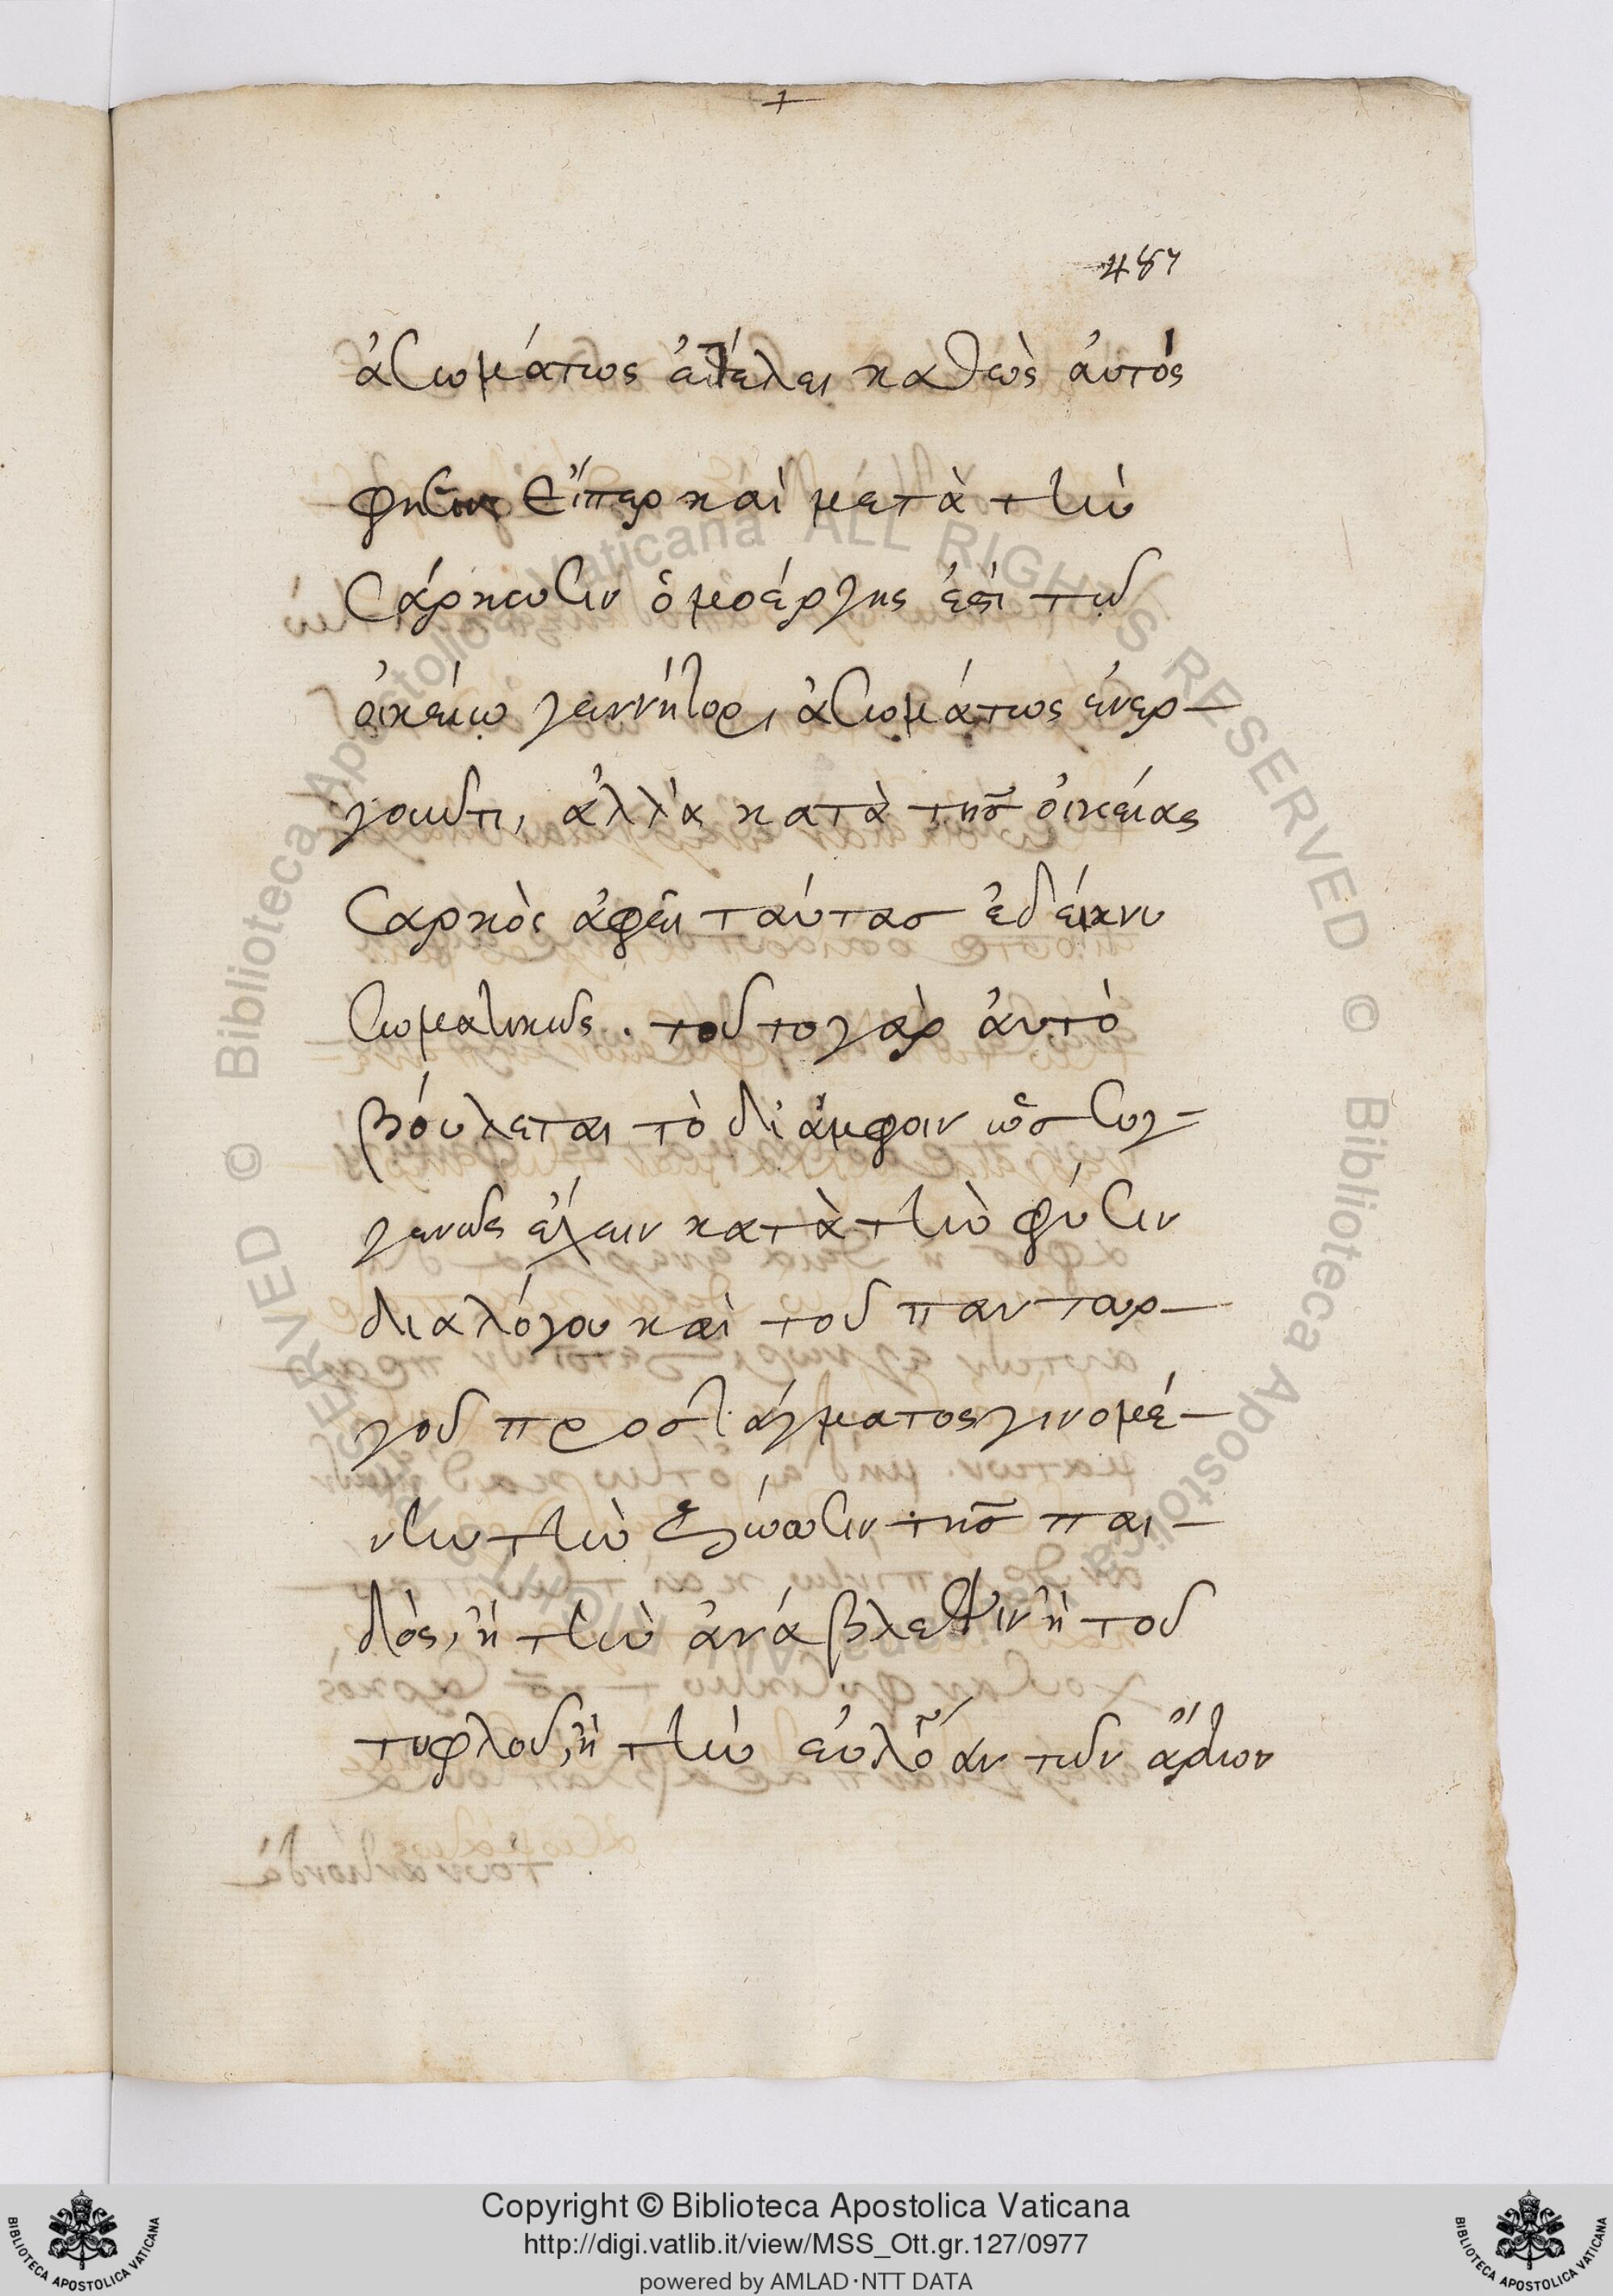 487
ἀσωμάτως ἐτέλει καθὼς ἀυτός
φησιν εἴπερ καὶ μετὰ τὴν
σάρκωσιν ὁμοέργης ἐστὶ τῶ
ὀικείω γεννήτορι ἀσωμάτως ἐνερ-
γοῦντι, ἀλλὰ κατὰ τῆς ὀικείας
σαρκὸς ἀφεὶς ταύτας ἐδείκνυ
σωματικῶς. τοῦτο γὰρ ἀυτὸ
βόυλεται τὸ δι ἀμφοιν ὡς συγ-
γενῶς ἔχειν κατὰ τὴν φύσιν
δια λόγου καὶ τοῦ παντουρ-
γοῦ προστάγματος γινομέ-
νην τὴν ζώωσιν τῆς παι-
δὸς, ἢ τὴν ἀνάβλεψιν ἢ τοῦ
τυφλοῦ, ἢ τὴν ἐυλογίαν τῶν ἄρτων
Copyright © Biblioteca Apostolica Vaticana
http://digi.vatlib.it/view/MSS_Ott.gr.127/0977
powered by AMLAD·NTT DATA
BIBLIOTECA APOSTOLICA VATICANA
BIBLIOTECA APOSTOLICA VATICANA
© Biblioteca Apostolica Vaticana ALL RIGHTS RESERVED
© Biblioteca Apostolica Vaticana ALL RIGHTS RESERVED